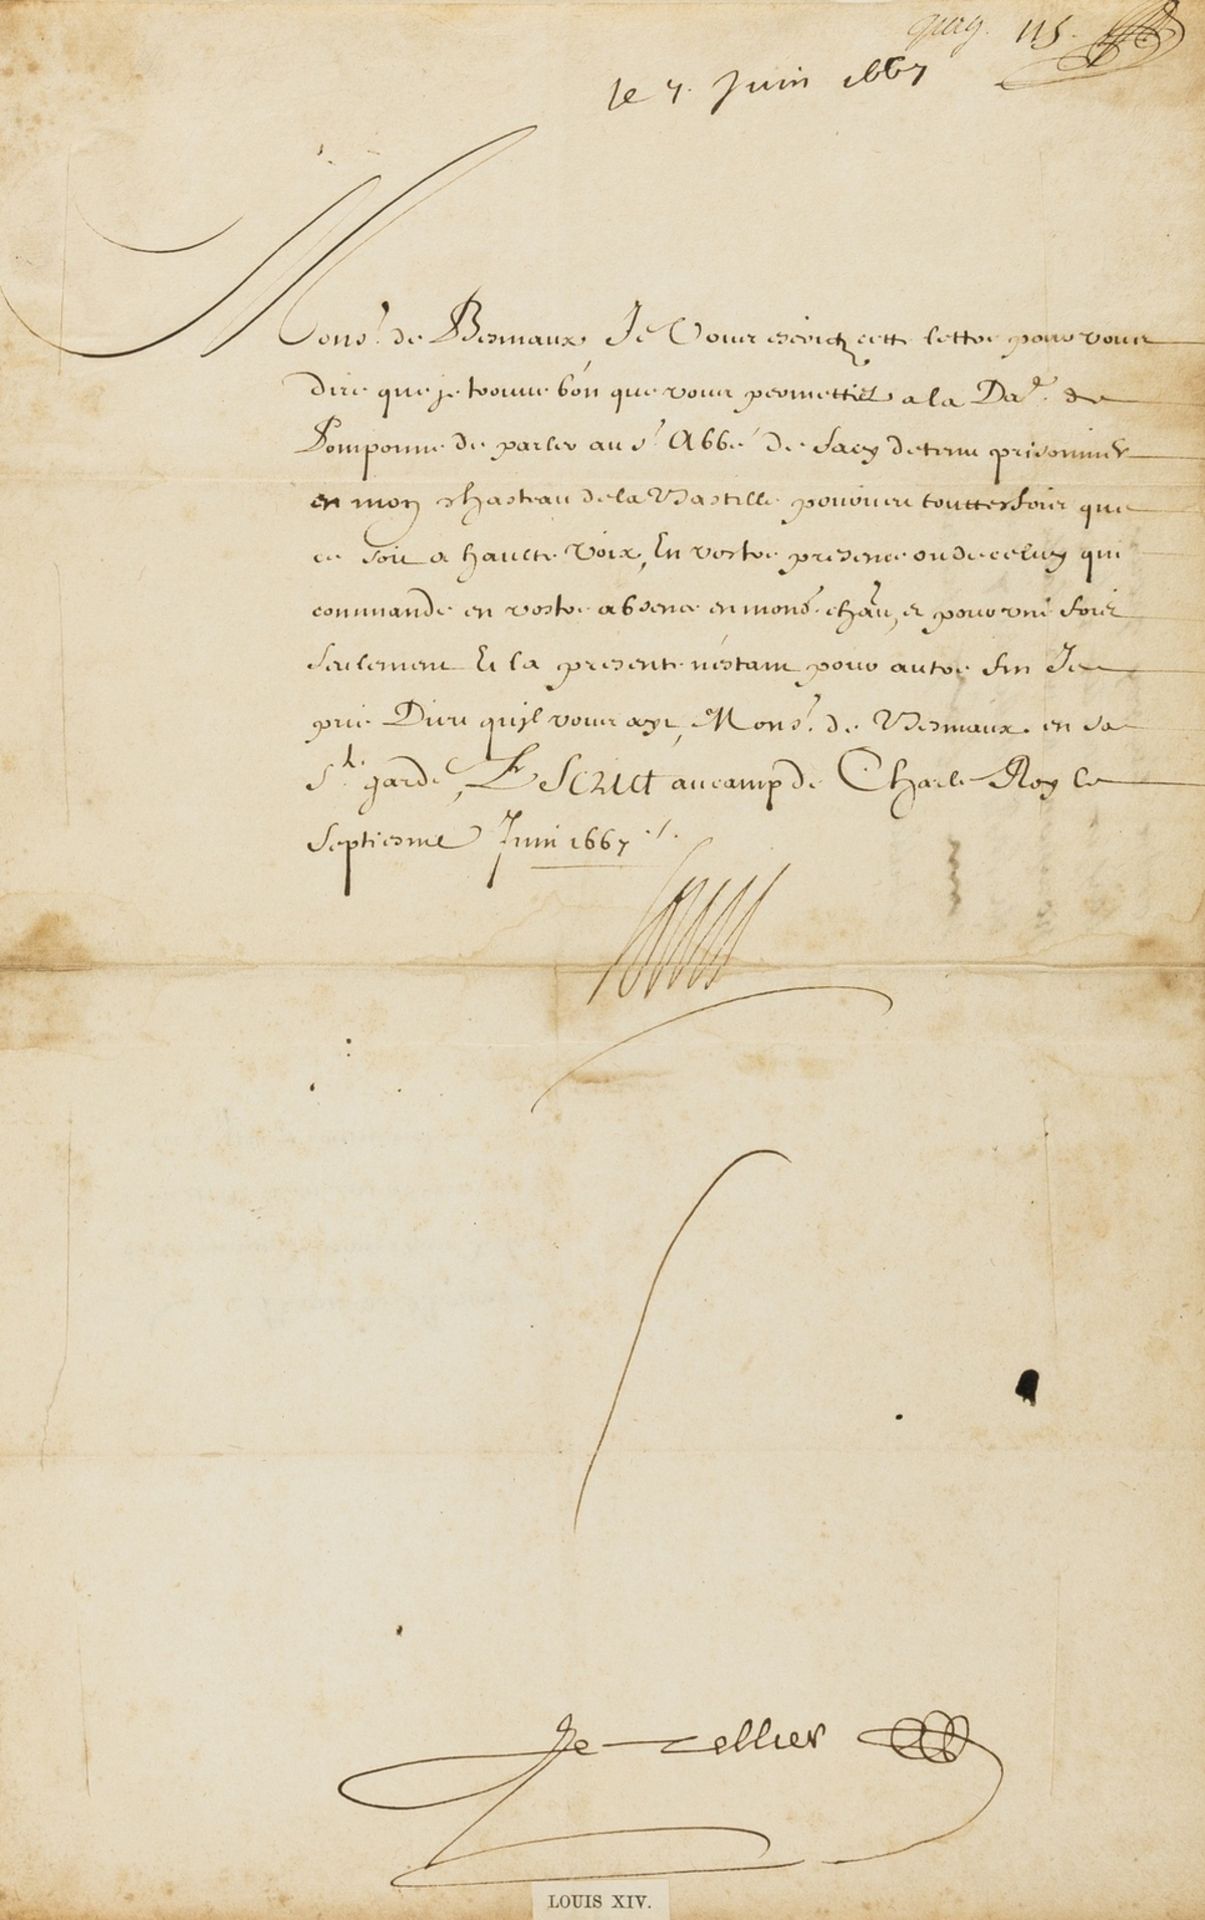 115.
le 7. Juin 1667
Mons.r de Besmaux, Je Vous escridz cette lettre pour vous
dire que je trouue bon que vous permettiez a la Da.e de
Pomponne de parler au s.r Abbé de Sacy detenu prisonnier
en mon chasteau de la Bastille pourueu touttesfois que
ce soit a haulte voix, En vostre presence ou de celuy qui
commande en vostre absence en mond. chau, et pour vne fois
seulement Et la presente n'estant pour autre fin Je
prie Dieu qu'jl vous ayt, Mons.r de Besmaux. en sa
s.te garde, Escrict au camp de Charle Roy le
septiesme Juin 1667 ./.
Louis
Le Tellier
LOUIS XIV.